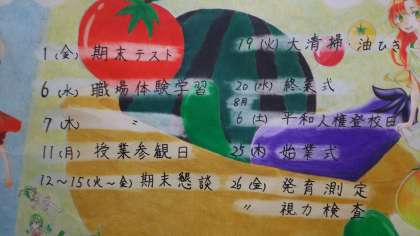 1(金) 期末テスト
6(水) 職場体験学習
7(木) 〃
11(月) 授業参観日
12〜15(火〜金) 期末懇談
19(火) 大清掃・油ひき
20(水) 終業式
8月
6(土) 平和人権登校日
25(木) 始業式
26(金) 発育測定
〃 視力検査